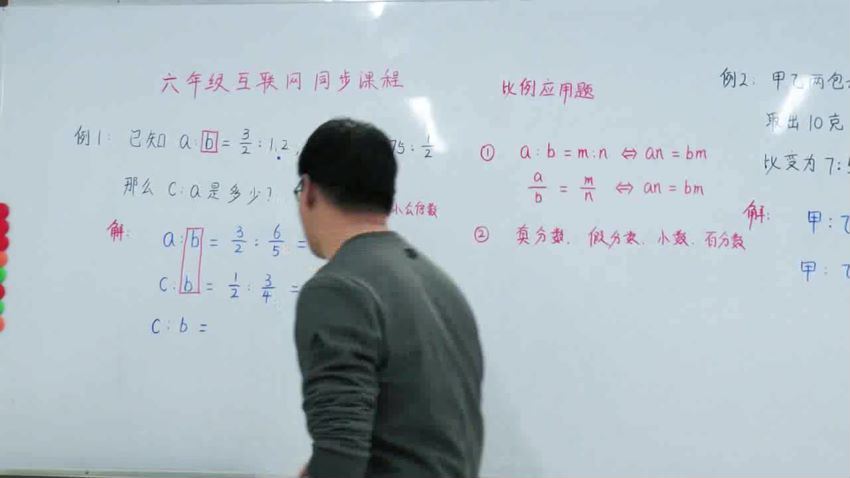 六年级互联网同步课程
例1: 已知 a:b = 3/2 : 1.2, 75 : 1/2
那么 c:a是多少?
小公倍数
解: a:b = 3/2 : 6/5 =
c:b = 1/2 : 3/4 =
c:b =
比例应用题
① a:b = m:n ⇔ an = bm
a/b = m/n ⇔ an = bm
② 真分数、假分数、小数、百分数
例2: 甲乙两包
取出10克
比变为 7:5
解: 甲:乙
甲: